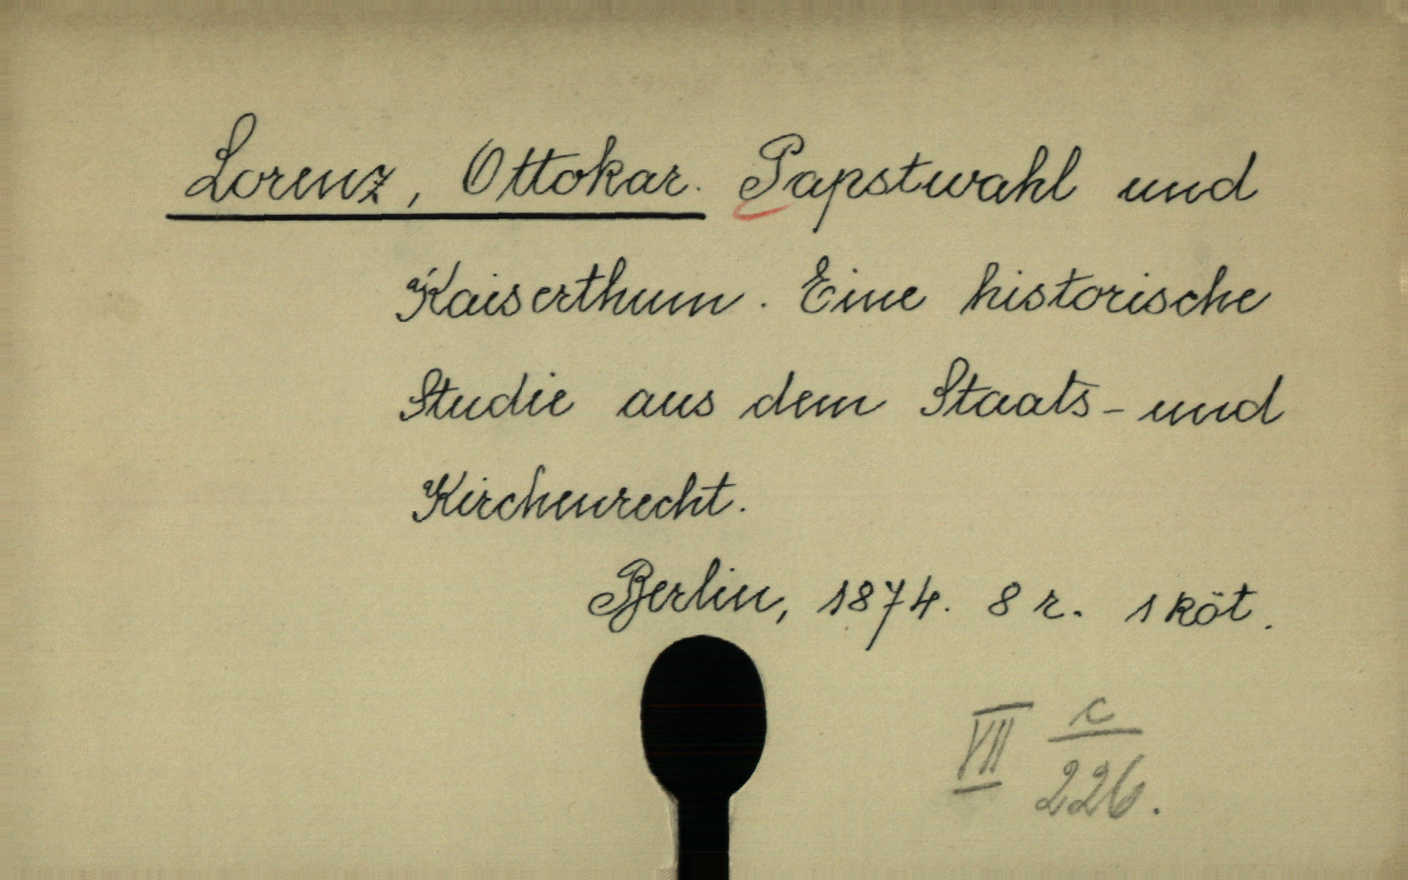 Lorenz, Ottokar. Papstwahl und
Kaiserthum. Eine historische
Studie aus dem Staats- und
Kirchenrecht.
Berlin, 1874. 8 r. 1 köt.
VII c/226.